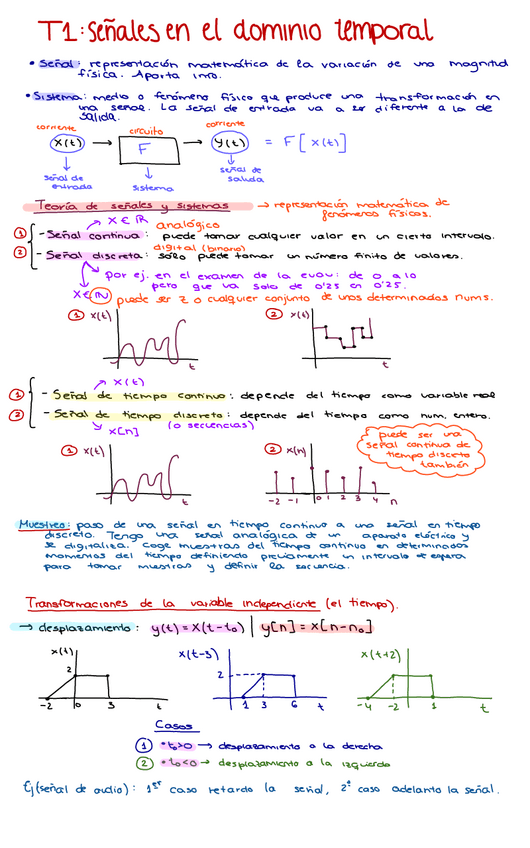 T1: Señales en el dominio temporal
• Señal: representación matemática de la variación de una magnitud
física. Aporta info.
• Sistema: medio o fenómeno físico que produce una transformación en
una señal. La señal de entrada va a ser diferente a la de
salida.
corriente circuito corriente
x(t) → F → y(t) = F[x(t)]
señal de entrada sistema señal de salida
Teoría de señales y sistemas → representación matemática de
fenómenos físicos.
x ∈ ℝ analógico
① - Señal continua: puede tomar cualquier valor en un cierto intervalo.
digital (binario)
② - Señal discreta: sólo puede tomar un número finito de valores.
por ej. en el examen de la evau: de 0 a 10
pero que va solo de 0'25 en 0'25.
x ∈ ℕ puede ser Z o cualquier conjunto de unos determinados nums.
① x(t) t ② x(t) t
x(t)
① - Señal de tiempo continuo: depende del tiempo como variable real
② - Señal de tiempo discreto: depende del tiempo como num. entero.
x[n] (o secuencias)
puede ser una
señal continua de
tiempo discreto
también
① x(t) t ② x(n) -2 -1 0 1 2 3 4 n
Muestreo: paso de una señal en tiempo continuo a una señal en tiempo
discreto. Tengo una señal analógica de un aparato eléctrico y
se digitaliza. Coge muestras del tiempo continuo en determinados
momentos del tiempo definiendo previamente un intervalo espera
para tomar muestras y definir la secuencia.
Transformaciones de la variable independiente (el tiempo).
→ desplazamiento: y(t) = x(t-t₀) | y[n] = x[n-n₀]
x(t) x(t-3) x(t+2)
2 2
-2 0 3 t 1 3 6 t -4 -2 1 t
Casos
① • t₀>0 → desplazamiento a la derecha
② • t₀<0 → desplazamiento a la izquierda
Ej (señal de audio): 1er caso retardo la señal, 2º caso adelanto la señal.